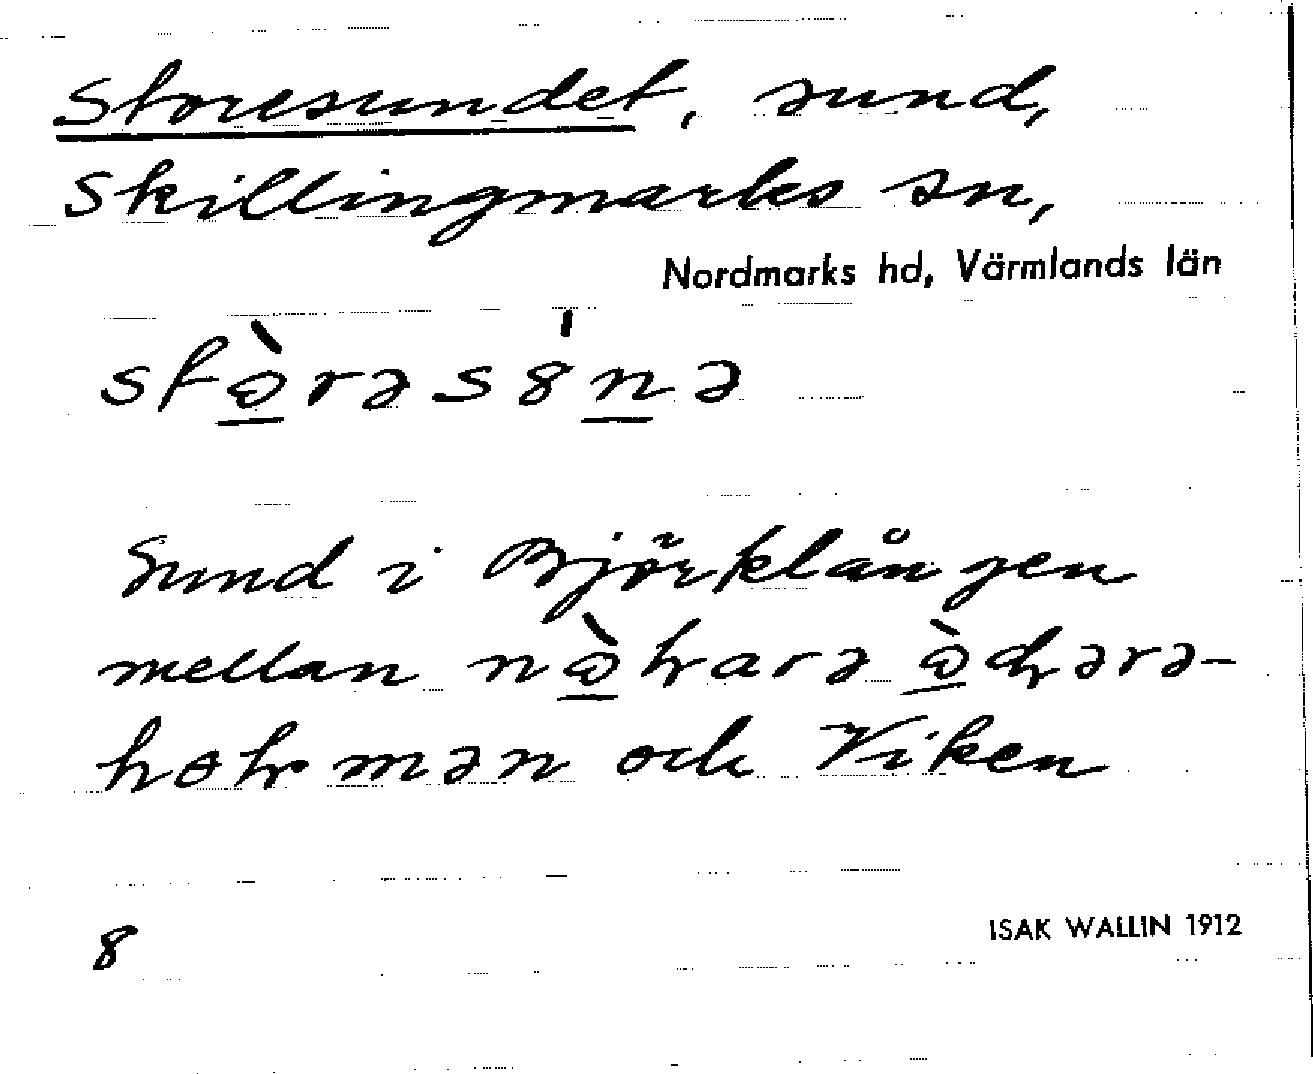 Storesundet, sund,
Skillingmarks sn,
Nordmarks hd, Värmlands län
Sund i Björklången
mellan
och Viken
8
ISAK WALLIN 1912